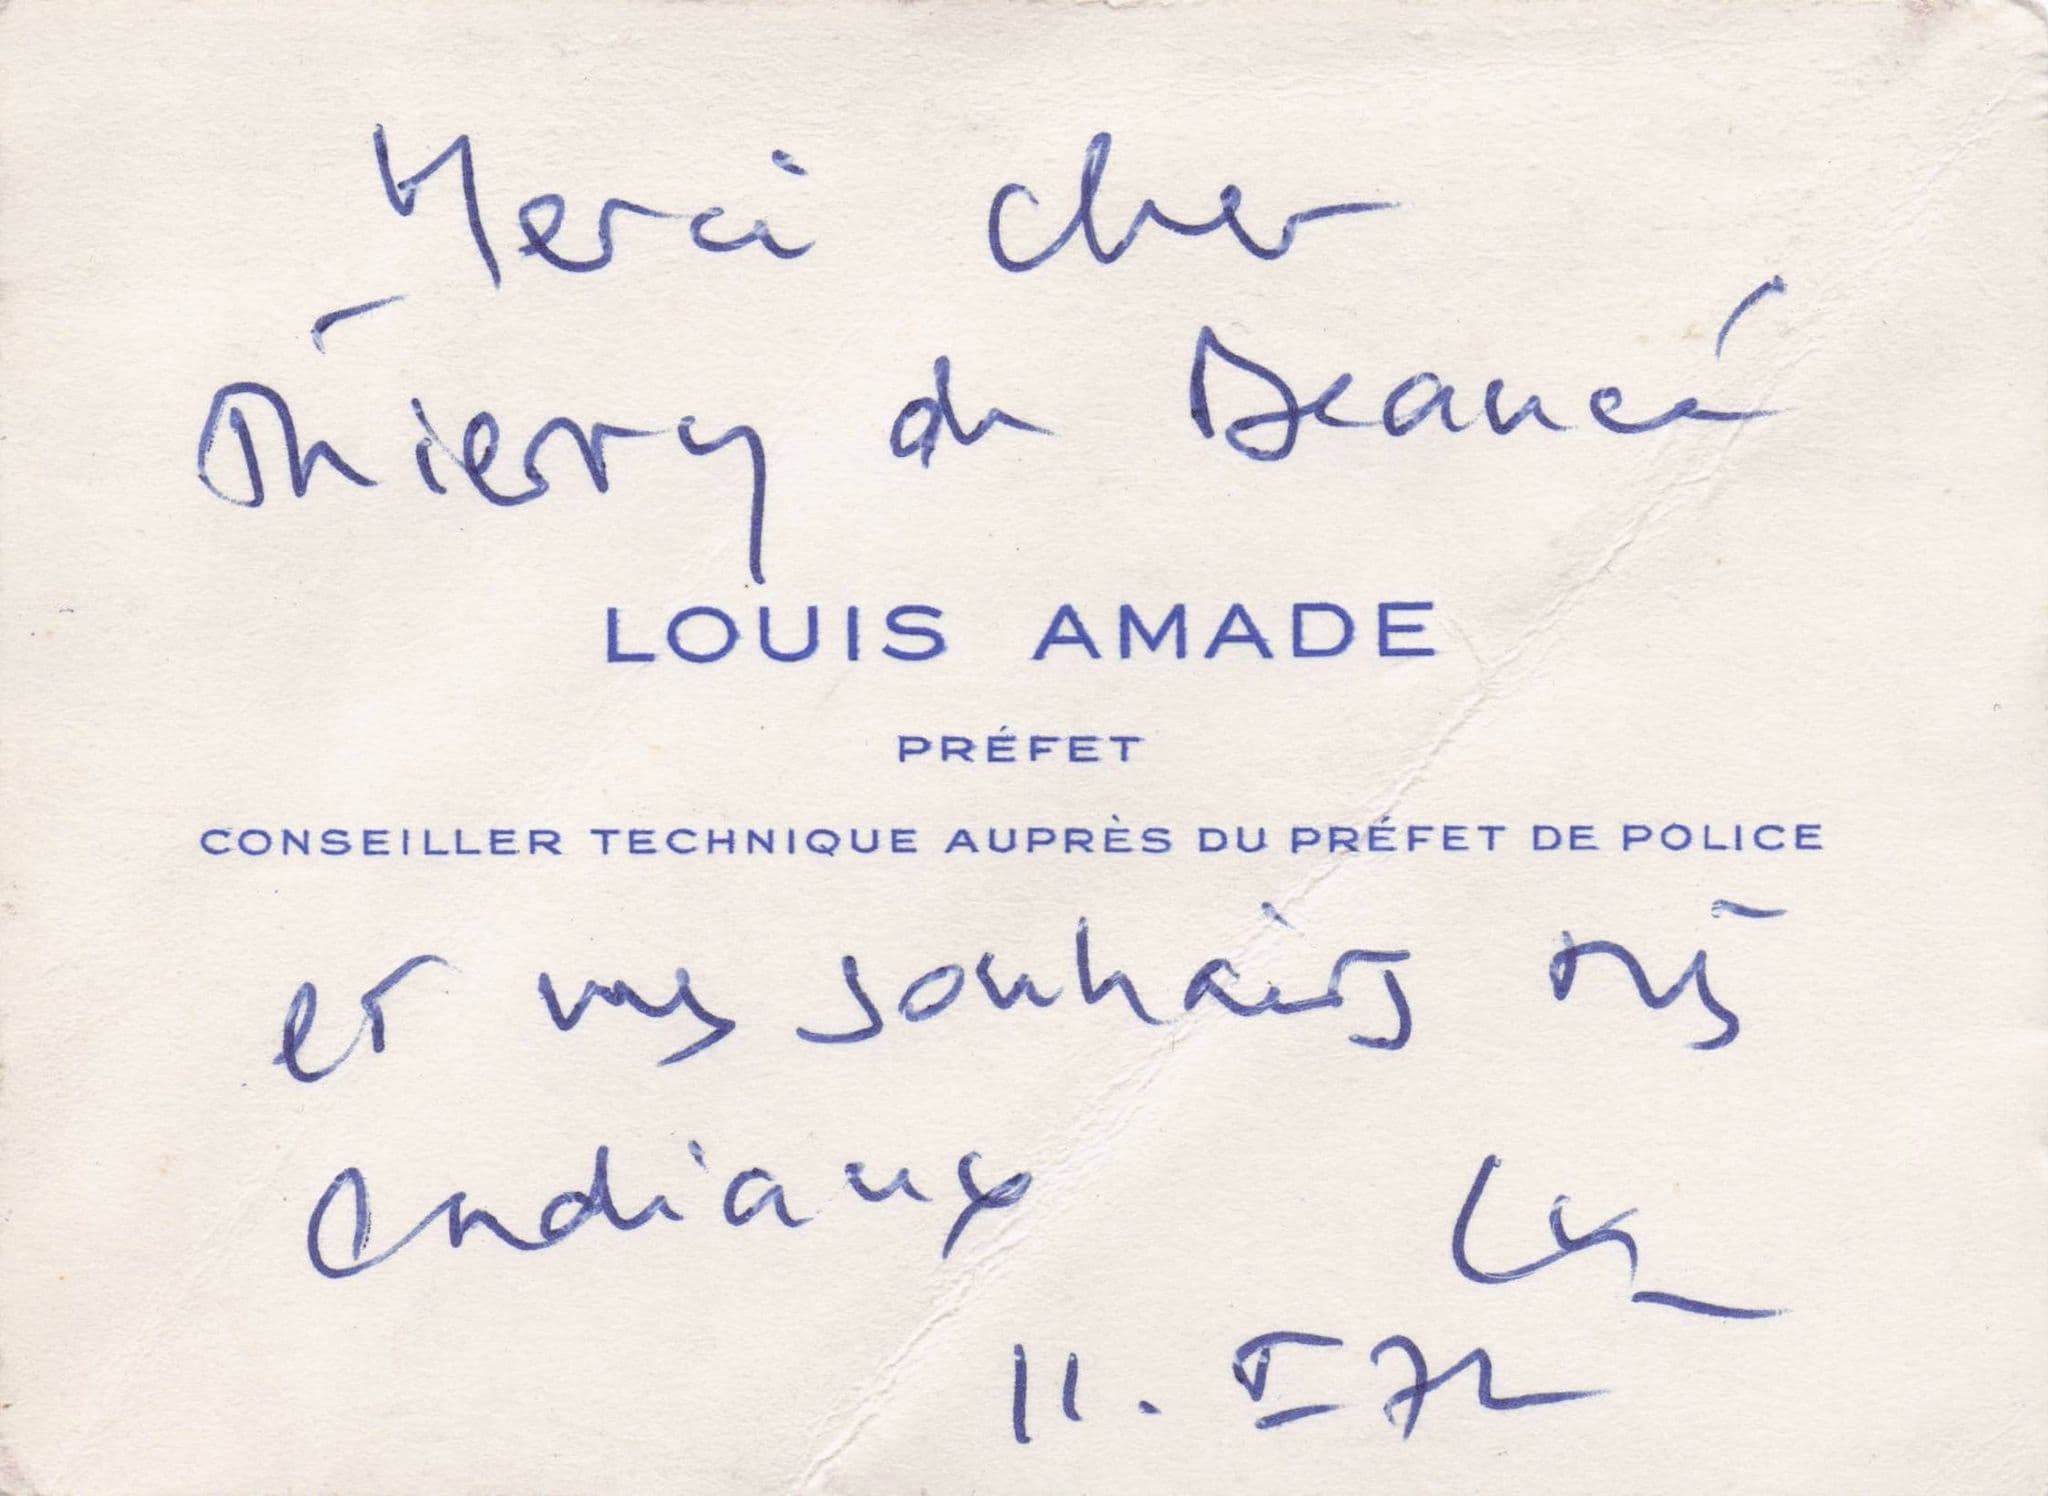 Merci cher
Thierry de Beaucé
LOUIS AMADE
PRÉFET
CONSEILLER TECHNIQUE AUPRÈS DU PRÉFET DE POLICE
et vos souhaits très
cordiaux
11. I 72